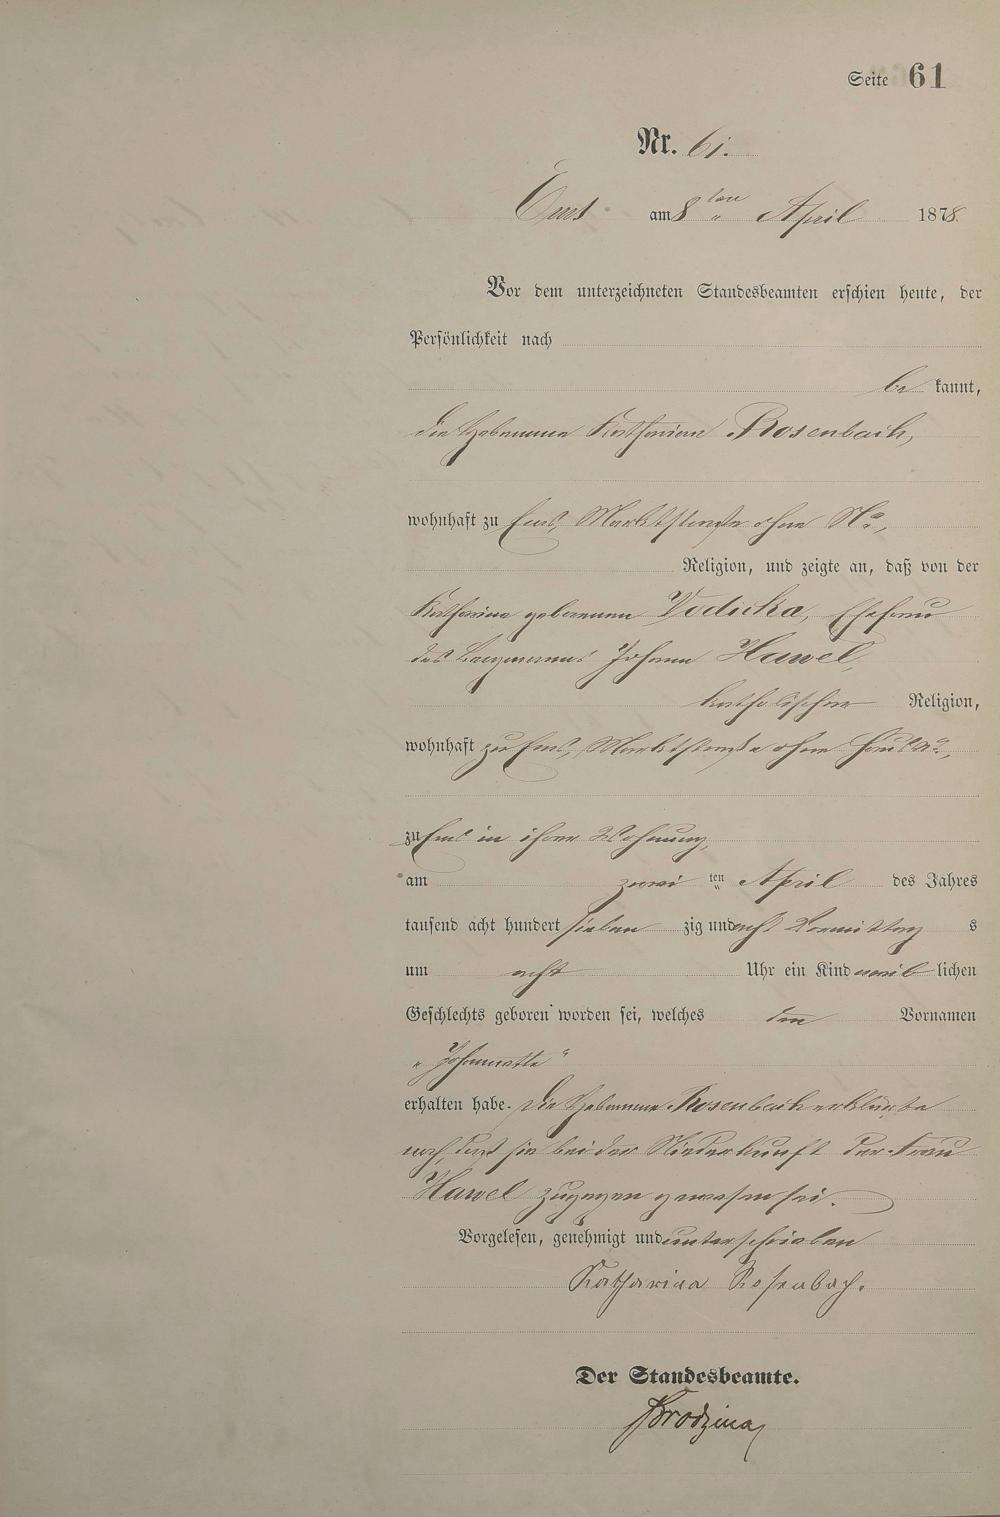 Seite 61
Nr. 61.
Ems am 8ten April 1878.
Vor dem unterzeichneten Standesbeamten erschien heute, der
Persönlichkeit nach
be kannt,
die Hebamme Katharina Rosenbach,
wohnhaft zu Ems, Marktstraße ohne No,
Religion, und zeigte an, daß von der
Katharina geborenen Vodicka, Ehefrau
des Bergmanns Johann Hawel,
katholischer Religion,
wohnhaft zu Ems, Marktstraße ohne Haus No,
zu Ems in ihrer Wohnung,
am zwei ten April des Jahres
tausend acht hundert sieben zig und acht Vormittag s
um acht Uhr ein Kind weib lichen
Geschlechts geboren worden sei, welches den Vornamen
„Johannette“
erhalten habe. Die Hebamme Rosenbach erklärte
noch, daß sie bei der Niederkunft der Frau
Hawel zugegen gewesen sei.
Vorgelesen, genehmigt und unterschrieben
Katharina Rosenbach.
Der Standesbeamte.